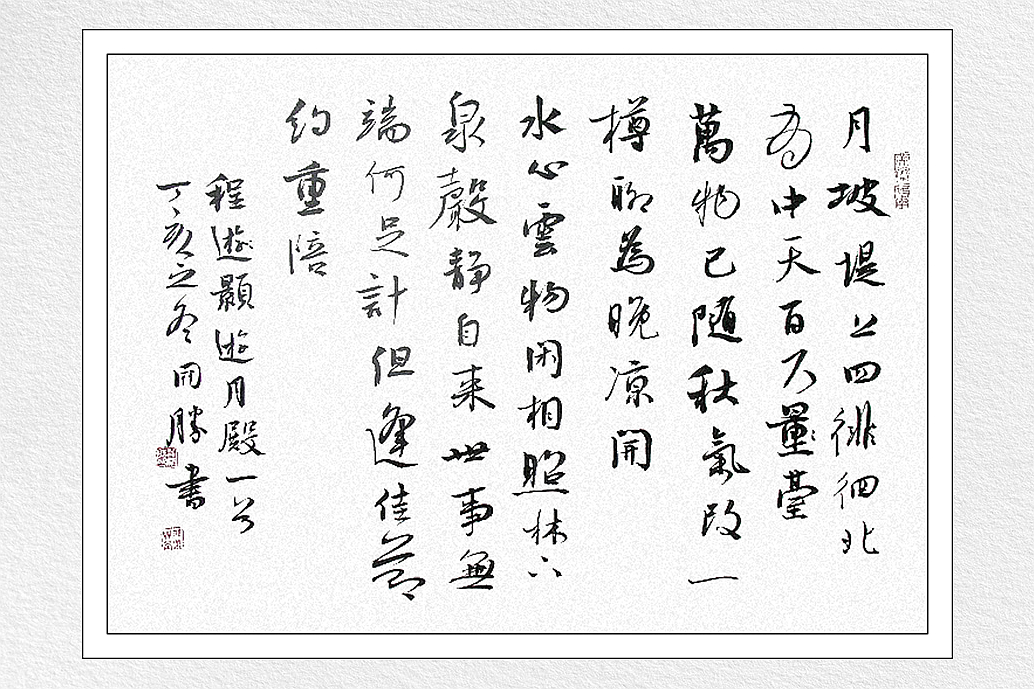 月坡堤上四徘徊北
有中天百尺量臺
萬物已随秋氣改一
樽聊為晚凉開
水心雲物闲相照林下
泉聲静自来世事無
端何足計但逢佳節
約重陪
程遊顥遊月殿一首
丁亥之冬勝書